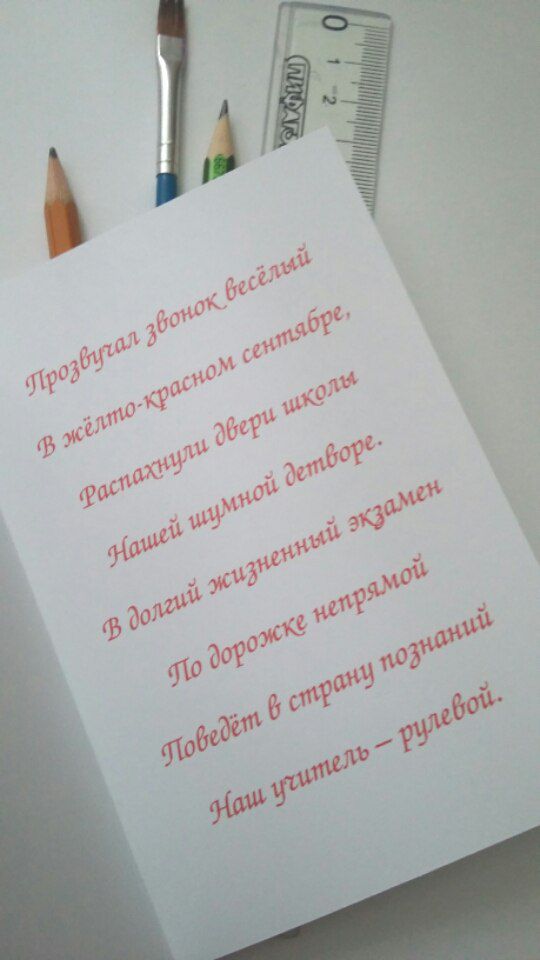 0
1
2
Прозвучал звонок весёлый
В жёлто-красном сентябре,
Распахнули двери школы
Нашей шумной детворе.
В долгий жизненный экзамен
По дорожке непрямой
Поведёт в страну познаний
Наш учитель – рулевой.